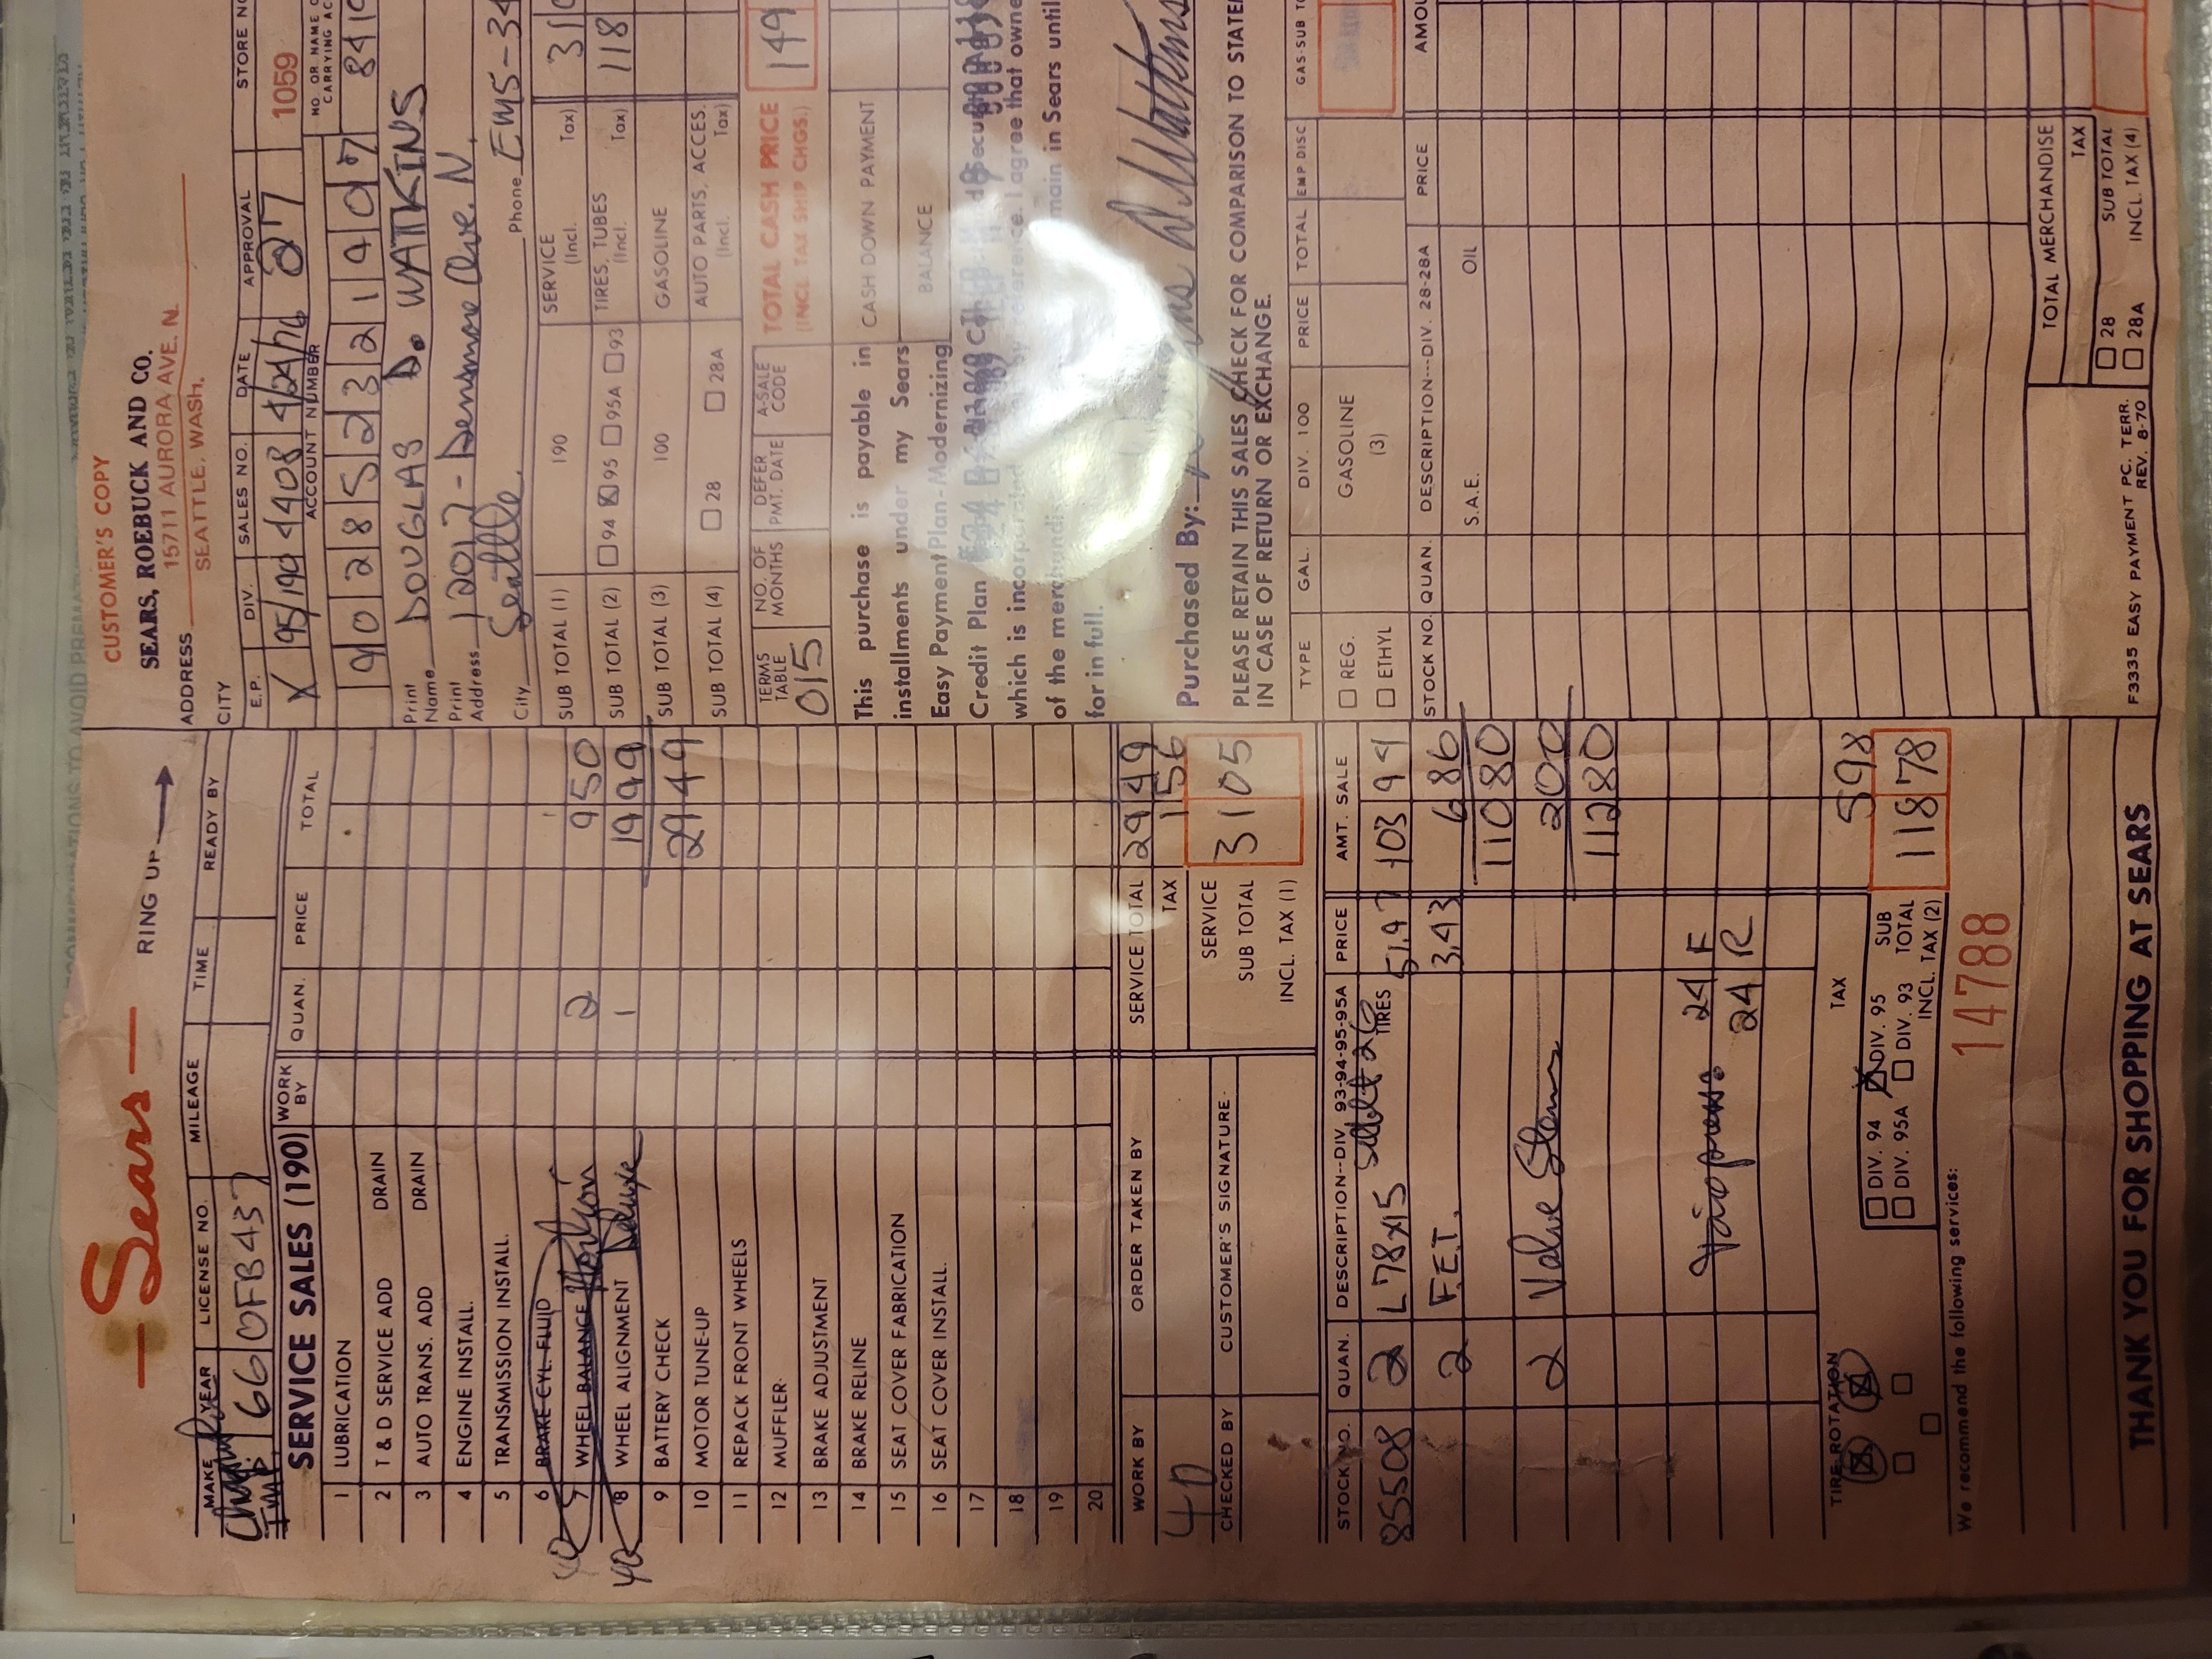 Sears
RING UP
MAKE YEAR LICENSE NO. MILEAGE TIME READY BY
66 OFB437
SERVICE SALES (190) WORK BY QUAN. PRICE TOTAL
1 LUBRICATION
2 T & D SERVICE ADD DRAIN
3 AUTO TRANS. ADD DRAIN
4 ENGINE INSTALL.
5 TRANSMISSION INSTALL.
6 BRAKE CYL. FLUID
7 WHEEL BALANCE 2 9 50
8 WHEEL ALIGNMENT Deluxe 1 19 99
9 BATTERY CHECK
10 MOTOR TUNE-UP 29 49
11 REPACK FRONT WHEELS
12 MUFFLER
13 BRAKE ADJUSTMENT
14 BRAKE RELINE
15 SEAT COVER FABRICATION
16 SEAT COVER INSTALL.
17
18
19
20
WORK BY ORDER TAKEN BY SERVICE TOTAL 29 49
40 TAX 1 56
CHECKED BY CUSTOMER'S SIGNATURE SERVICE SUB TOTAL INCL. TAX (1) 31 05
STOCK NO. QUAN. DESCRIPTION--DIV. 93-94-95-95A PRICE AMT. SALE
85508 2 L78x15 TIRES 51.97 103 94
2 F.E.T. 3.43 6 86
110 80
2 Valve Stems 2 00
112 80
24 F
24 R
TIRE ROTATION TAX 5 98
DIV. 94 DIV. 95
DIV. 95A DIV. 93
SUB TOTAL INCL. TAX (2) 118 78
We recommend the following services: 14788
THANK YOU FOR SHOPPING AT SEARS
CUSTOMER'S COPY
SEARS, ROEBUCK AND CO.
ADDRESS 15711 AURORA AVE. N.
CITY SEATTLE, WASH.
E.P. DIV. SALES NO. DATE APPROVAL STORE NO
X 95/190 4408 4/24/76 27 1059
ACCOUNT NUMBER NO. OR NAME
CARRYING AC
9 0 2 8 5 2 3 2 1 4 0 7
Print Name DOUGLAS D. WATKINS
Print Address 12017 - Densmore Ave. N.
City Seattle Phone EM5-34
SUB TOTAL (1) 190 SERVICE (Incl. Tax) 31
SUB TOTAL (2) 94 95 95A 93 TIRES, TUBES (Incl. Tax) 118
SUB TOTAL (3) 100 GASOLINE
SUB TOTAL (4) 28 28A AUTO PARTS, ACCES. (Incl. Tax)
TERMS TABLE NO. OF MONTHS DEFER PMT. DATE A-SALE CODE TOTAL CASH PRICE
015 (INCL. TAX SHIP CHGS.) 149
This purchase is payable in CASH DOWN PAYMENT
installments under my Sears
Easy Payment Plan-Modernizing BALANCE
Credit Plan
which is incorporated by reference. I agree that owne
of the merchandi main in Sears until
for in full.
Purchased By:
PLEASE RETAIN THIS SALES CHECK FOR COMPARISON TO STATE
IN CASE OF RETURN OR EXCHANGE.
TYPE GAL. DIV. 100 PRICE TOTAL EMP DISC GAS-SUB TO
REG.
ETHYL
GASOLINE (3)
STOCK NO. QUAN. DESCRIPTION--DIV. 28-28A PRICE AMOU
S.A.E. OIL
TOTAL MERCHANDISE
TAX
28
28A
SUB TOTAL INCL. TAX (4)
F3335 EASY PAYMENT PC. TERR.
REV. 8-70